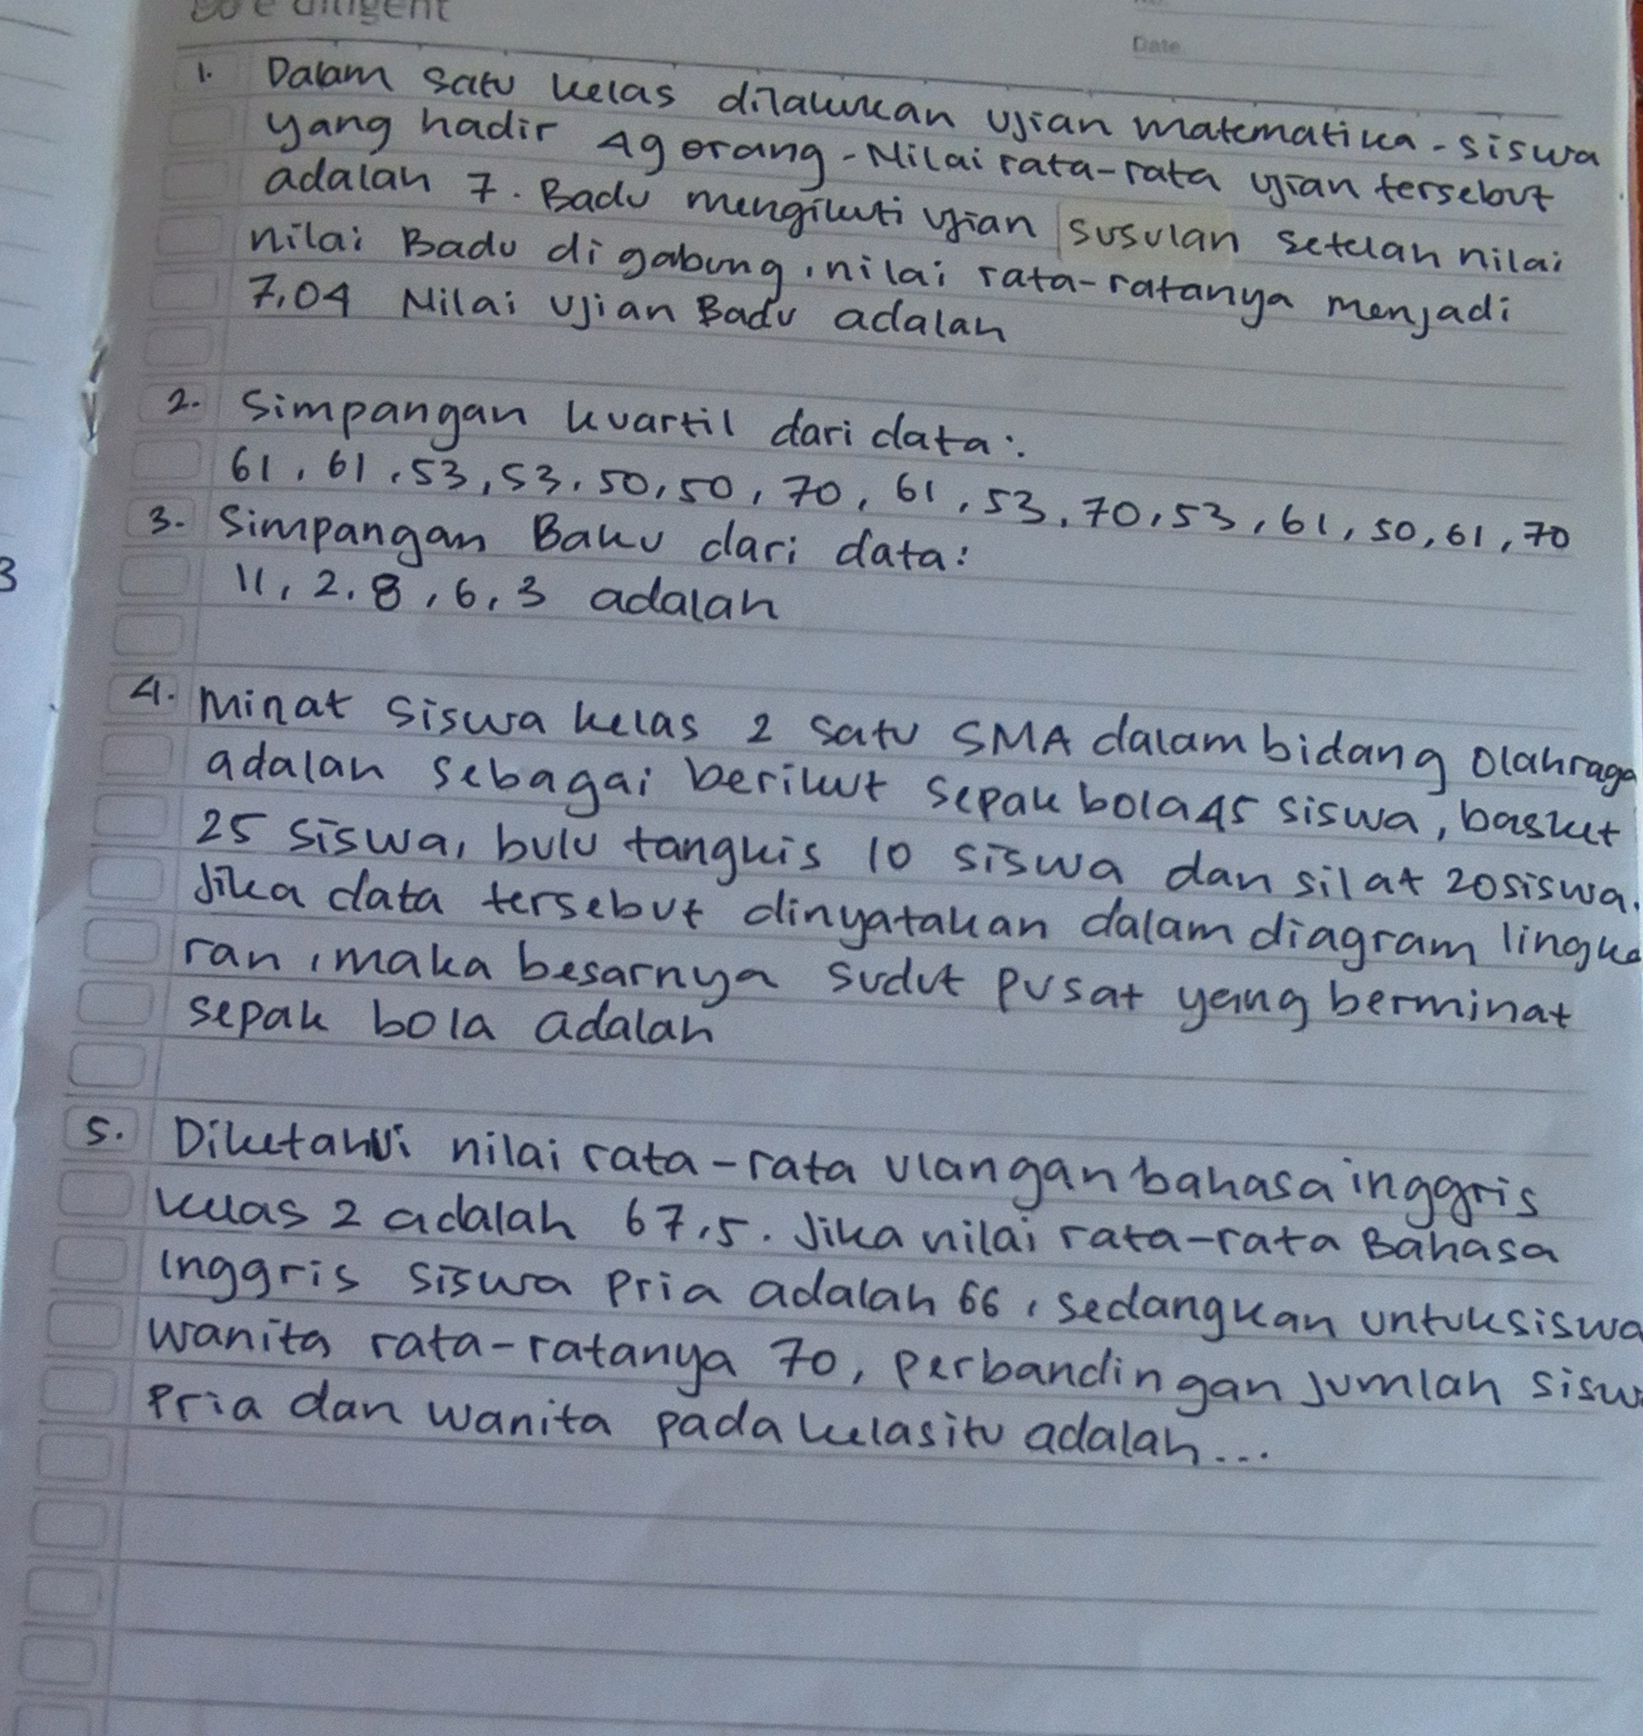 diligent
Date
1. Dalam satu kelas dilakukan ujian matematika - siswa
yang hadir 49 orang - Nilai rata-rata ujian tersebut
adalah 7. Badu mengikuti ujian susulan setelah nilai
nilai Badu di gabung, nilai rata-ratanya menjadi
7,04 Nilai Ujian Badu adalah
2. Simpangan kuartil dari data:
61, 61, 53, 53, 50, 50, 70, 61, 53, 70, 53, 61, 50, 61, 70
3. Simpangan Baku dari data:
11, 2, 8, 6, 3 adalah
3
4. Minat siswa kelas 2 satu SMA dalam bidang olahraga
adalah sebagai berikut sepak bola 45 siswa, basket
25 siswa, bulu tangkis 10 siswa dan silat 20 siswa.
Jika data tersebut dinyatakan dalam diagram lingka
ran, maka besarnya sudut pusat yang berminat
sepak bola adalah
5. Diketahui nilai rata-rata ulangan bahasa inggris
kelas 2 adalah 67,5. Jika nilai rata-rata Bahasa
Inggris siswa pria adalah 66, sedangkan untuk siswa
wanita rata-ratanya 70, perbandingan jumlah sisw
Pria dan wanita pada kelas itu adalah...